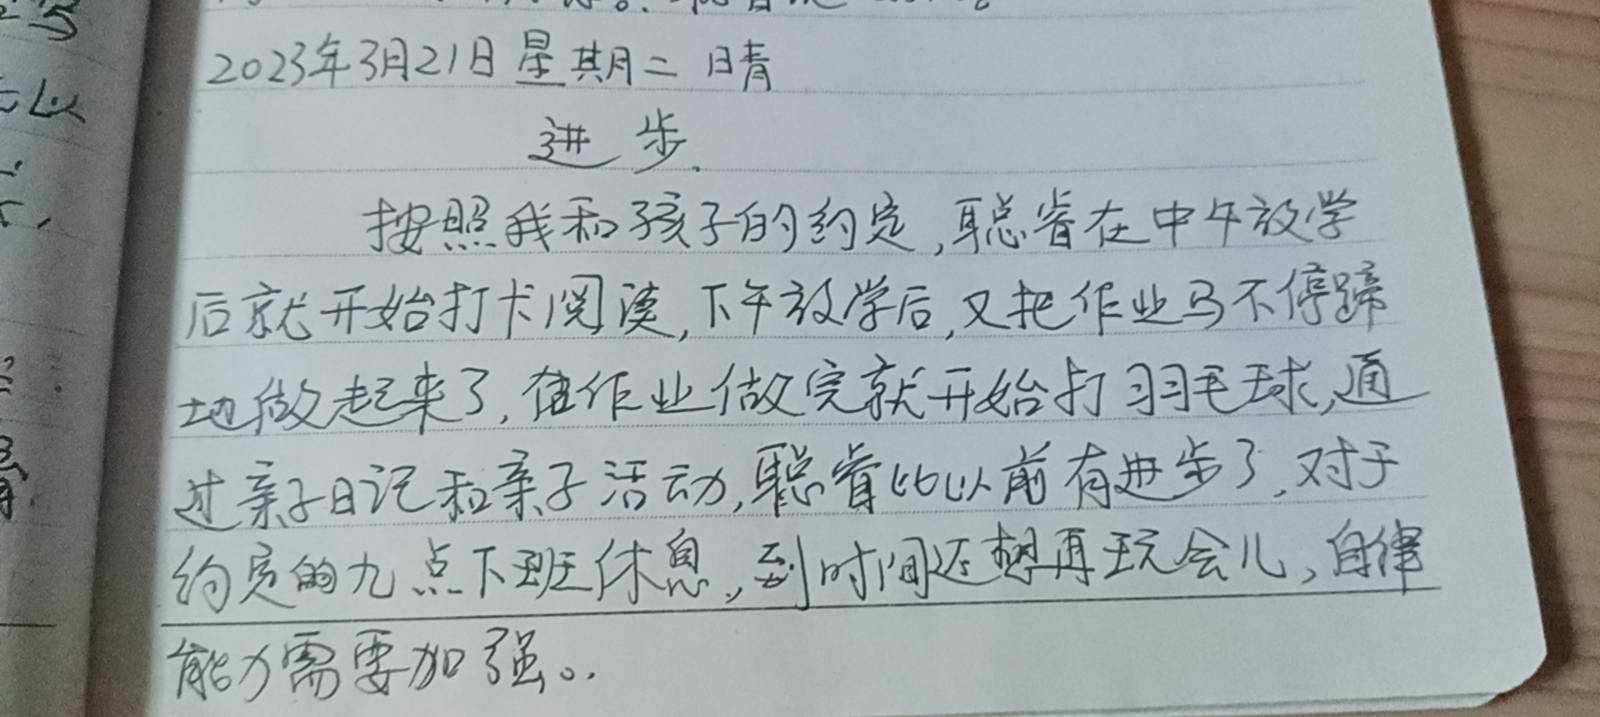 2023年3月21日 星期二 晴
进步
按照我和孩子的约定,聪睿在中午放学
后就开始打卡阅读,下午放学后,又把作业马不停蹄
地做起来了,作业做完就开始打羽毛球,通
过亲子日记和亲子活动,聪睿比以前有进步了,对于
约定的九点下班休息,到时间还想再玩会儿,自律
能力需要加强。